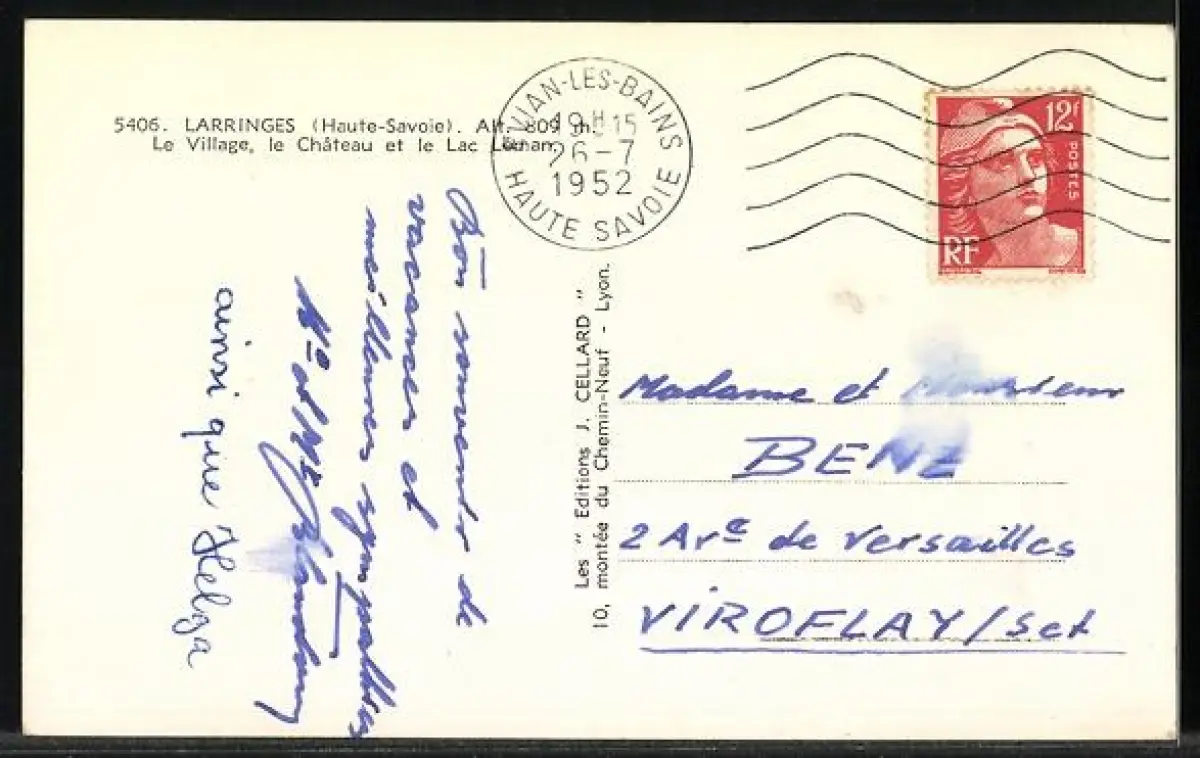 5406. LARRINGES (Haute-Savoie). Alt. 809 m.
Le Village, le Château et le Lac Léman.
EVIAN-LES-BAINS
19H 15
26-7
1952
HAUTE SAVOIE
12f
POSTES
RF
Bon souvenir de
vacances et
meilleures sympathies
Mr et Mme
ainsi que Helga
Les " Editions J. CELLARD "
10, montée du Chemin-Neuf - Lyon.
Madame et Monsieur
BENZ
2 Ave de Versailles
VIROFLAY/Set